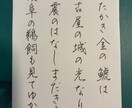 たかき金の鯱は
古屋の城の光なり
震のはなしまだき
阜の鵜飼も見てゆか